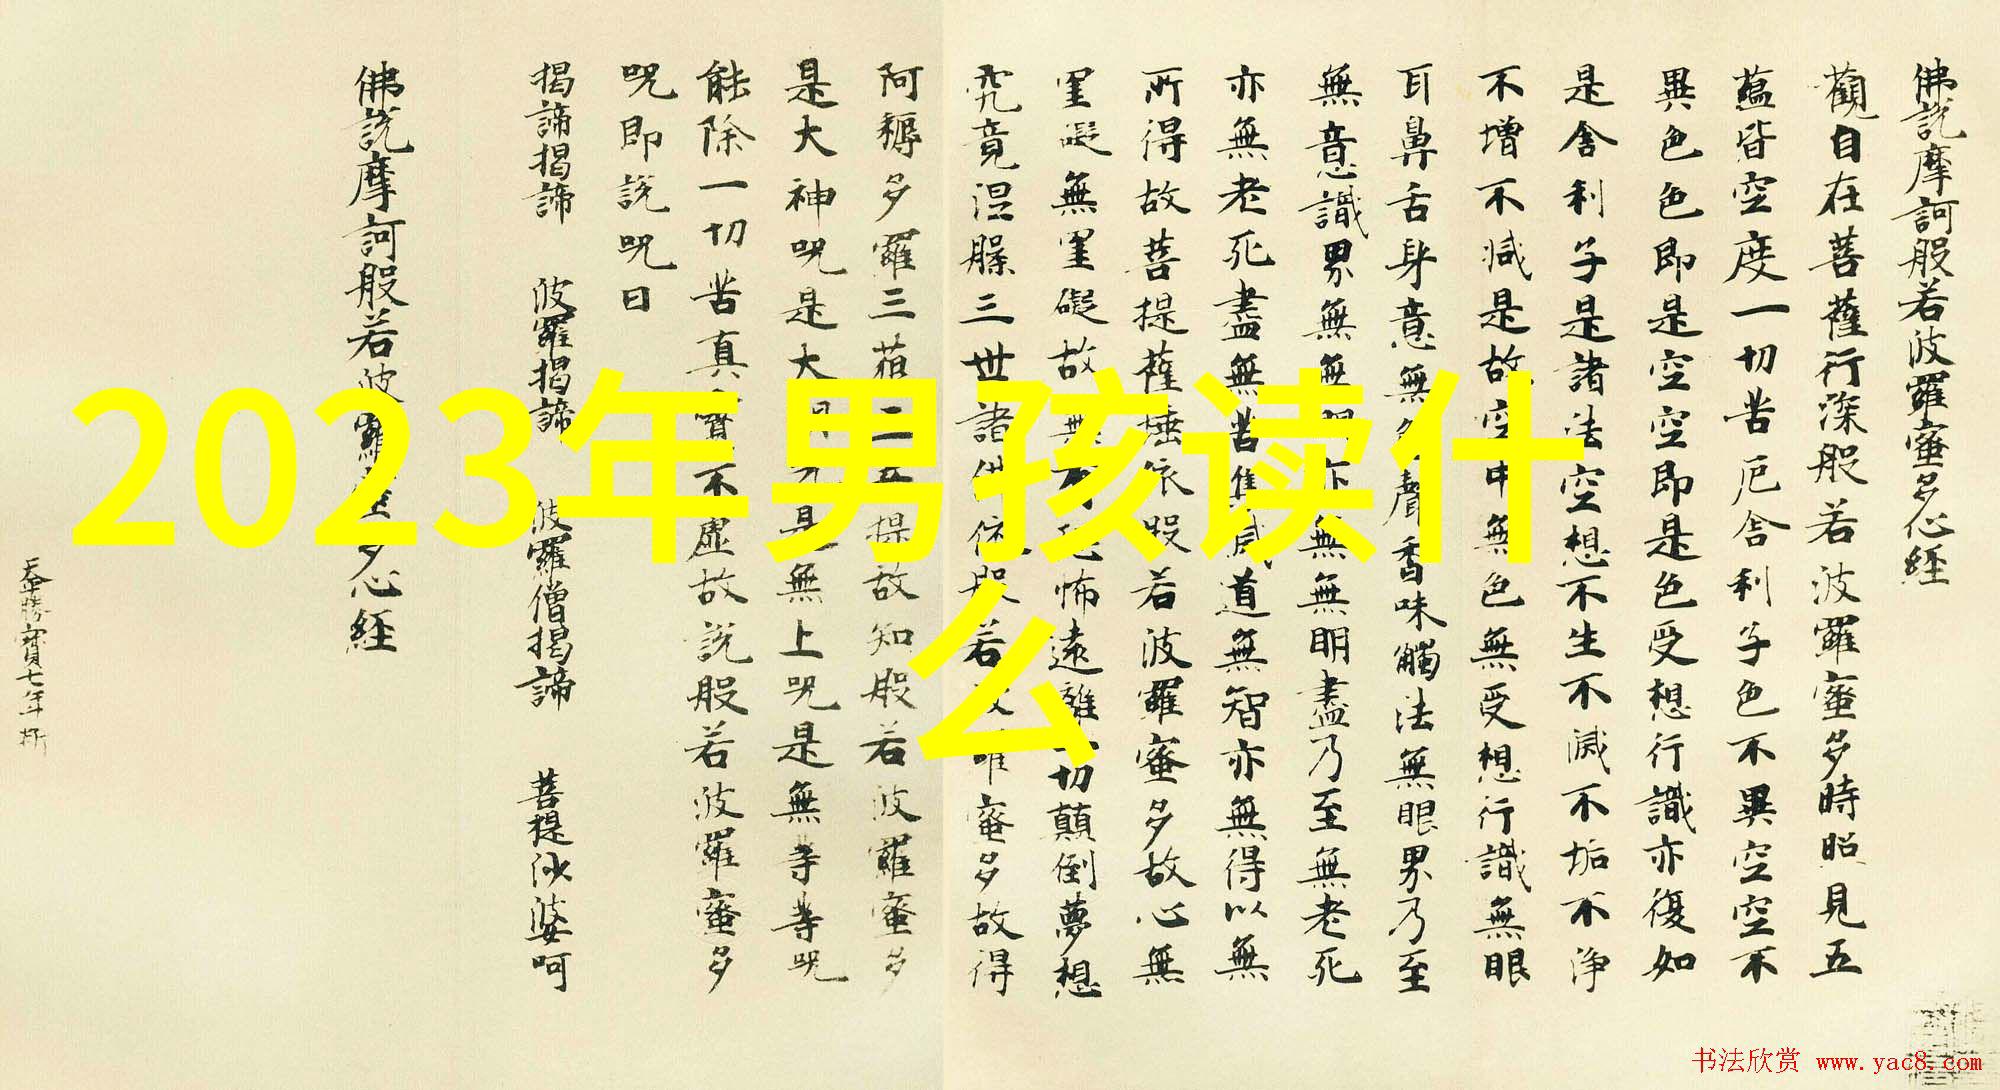 2023年男孩读什
么
佛說摩訶般若波羅蜜多心經
觀自在菩薩行深般若波羅蜜多時照見五
蘊皆空度一切苦厄舍利子色不異空空不
異色色即是空空即是色受想行識亦復如
是舍利子是諸法空想不生不滅不垢不淨
不增不減是故空中無色無受想行識無眼
耳鼻舌身意無色聲香味觸法無眼界乃至
無意識界無無明亦無無明盡乃至無老死
亦無老死盡無苦集滅道無智亦無得以無
所得故菩提薩埵依般若波羅蜜多故心無
罣礙無罣礙故無有恐怖遠離一切顛倒夢想
究竟涅槃三世諸佛依般若波羅蜜多故得
阿耨多羅三藐三菩提故知般若波羅蜜多
是大神咒是大明咒是無上咒是無等等咒
能除一切苦真實不虛故說般若波羅蜜多
咒即說咒曰
揭諦揭諦 波羅揭諦 波羅僧揭諦 菩提沙婆呵
佛說摩訶般若波羅蜜多心經
勝寶七年
书法欣赏 www.yac8.com